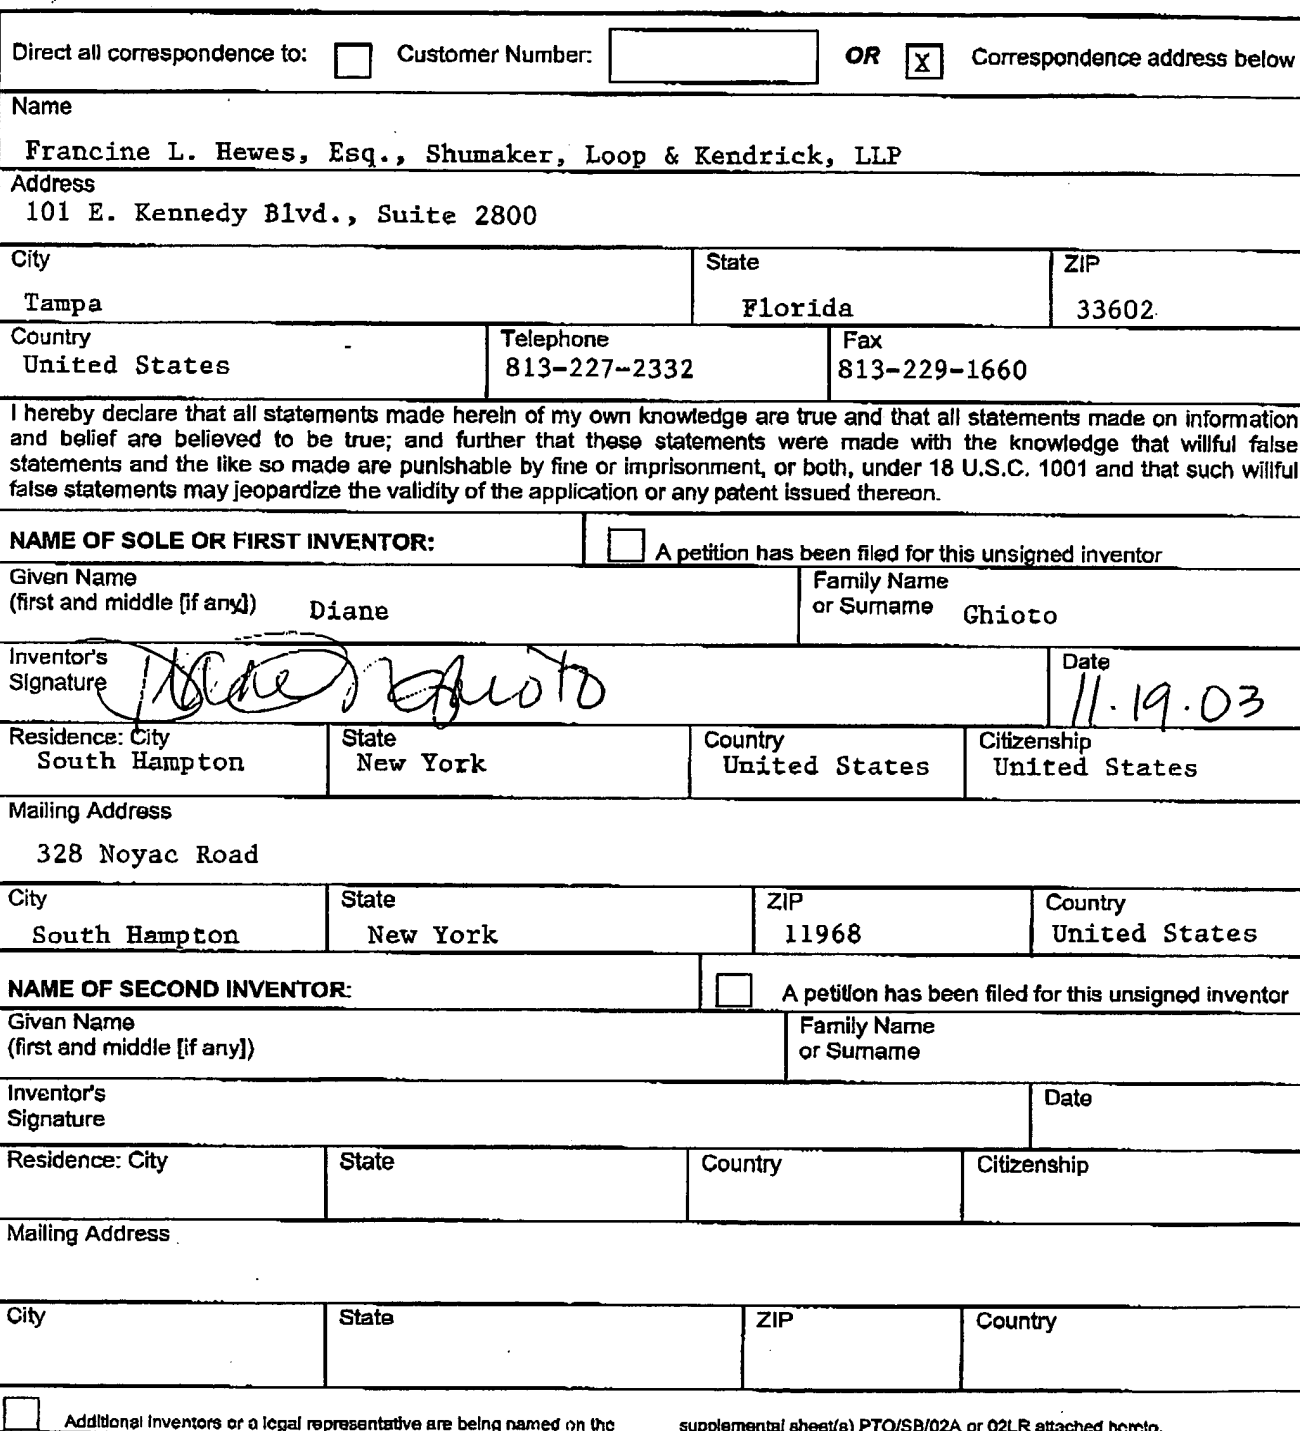 Direct all correspondence to: Customer Number: OR X Correspondence address below
Name
Francine L. Hewes, Esq., Shumaker, Loop & Kendrick, LLP
Address
101 E. Kennedy Blvd., Suite 2800
City State ZIP
Tampa Florida 33602
Country Telephone Fax
United States 813-227-2332 813-229-1660
I hereby declare that all statements made herein of my own knowledge are true and that all statements made on information
and belief are believed to be true; and further that these statements were made with the knowledge that willful false
statements and the like so made are punishable by fine or imprisonment, or both, under 18 U.S.C. 1001 and that such willful
false statements may jeopardize the validity of the application or any patent issued thereon.
NAME OF SOLE OR FIRST INVENTOR: A petition has been filed for this unsigned inventor
Given Name Family Name
(first and middle [if any]) Diane or Surname Ghioto
Inventor's Date
Signature Diane Ghioto 11.19.03
Residence: City State Country Citizenship
South Hampton New York United States United States
Mailing Address
328 Noyac Road
City State ZIP Country
South Hampton New York 11968 United States
NAME OF SECOND INVENTOR: A petition has been filed for this unsigned inventor
Given Name Family Name
(first and middle [if any]) or Surname
Inventor's Date
Signature
Residence: City State Country Citizenship
Mailing Address
City State ZIP Country
Additional inventors or a legal representative are being named on the supplemental sheet(s) PTO/SB/02A or 02LR attached hereto.